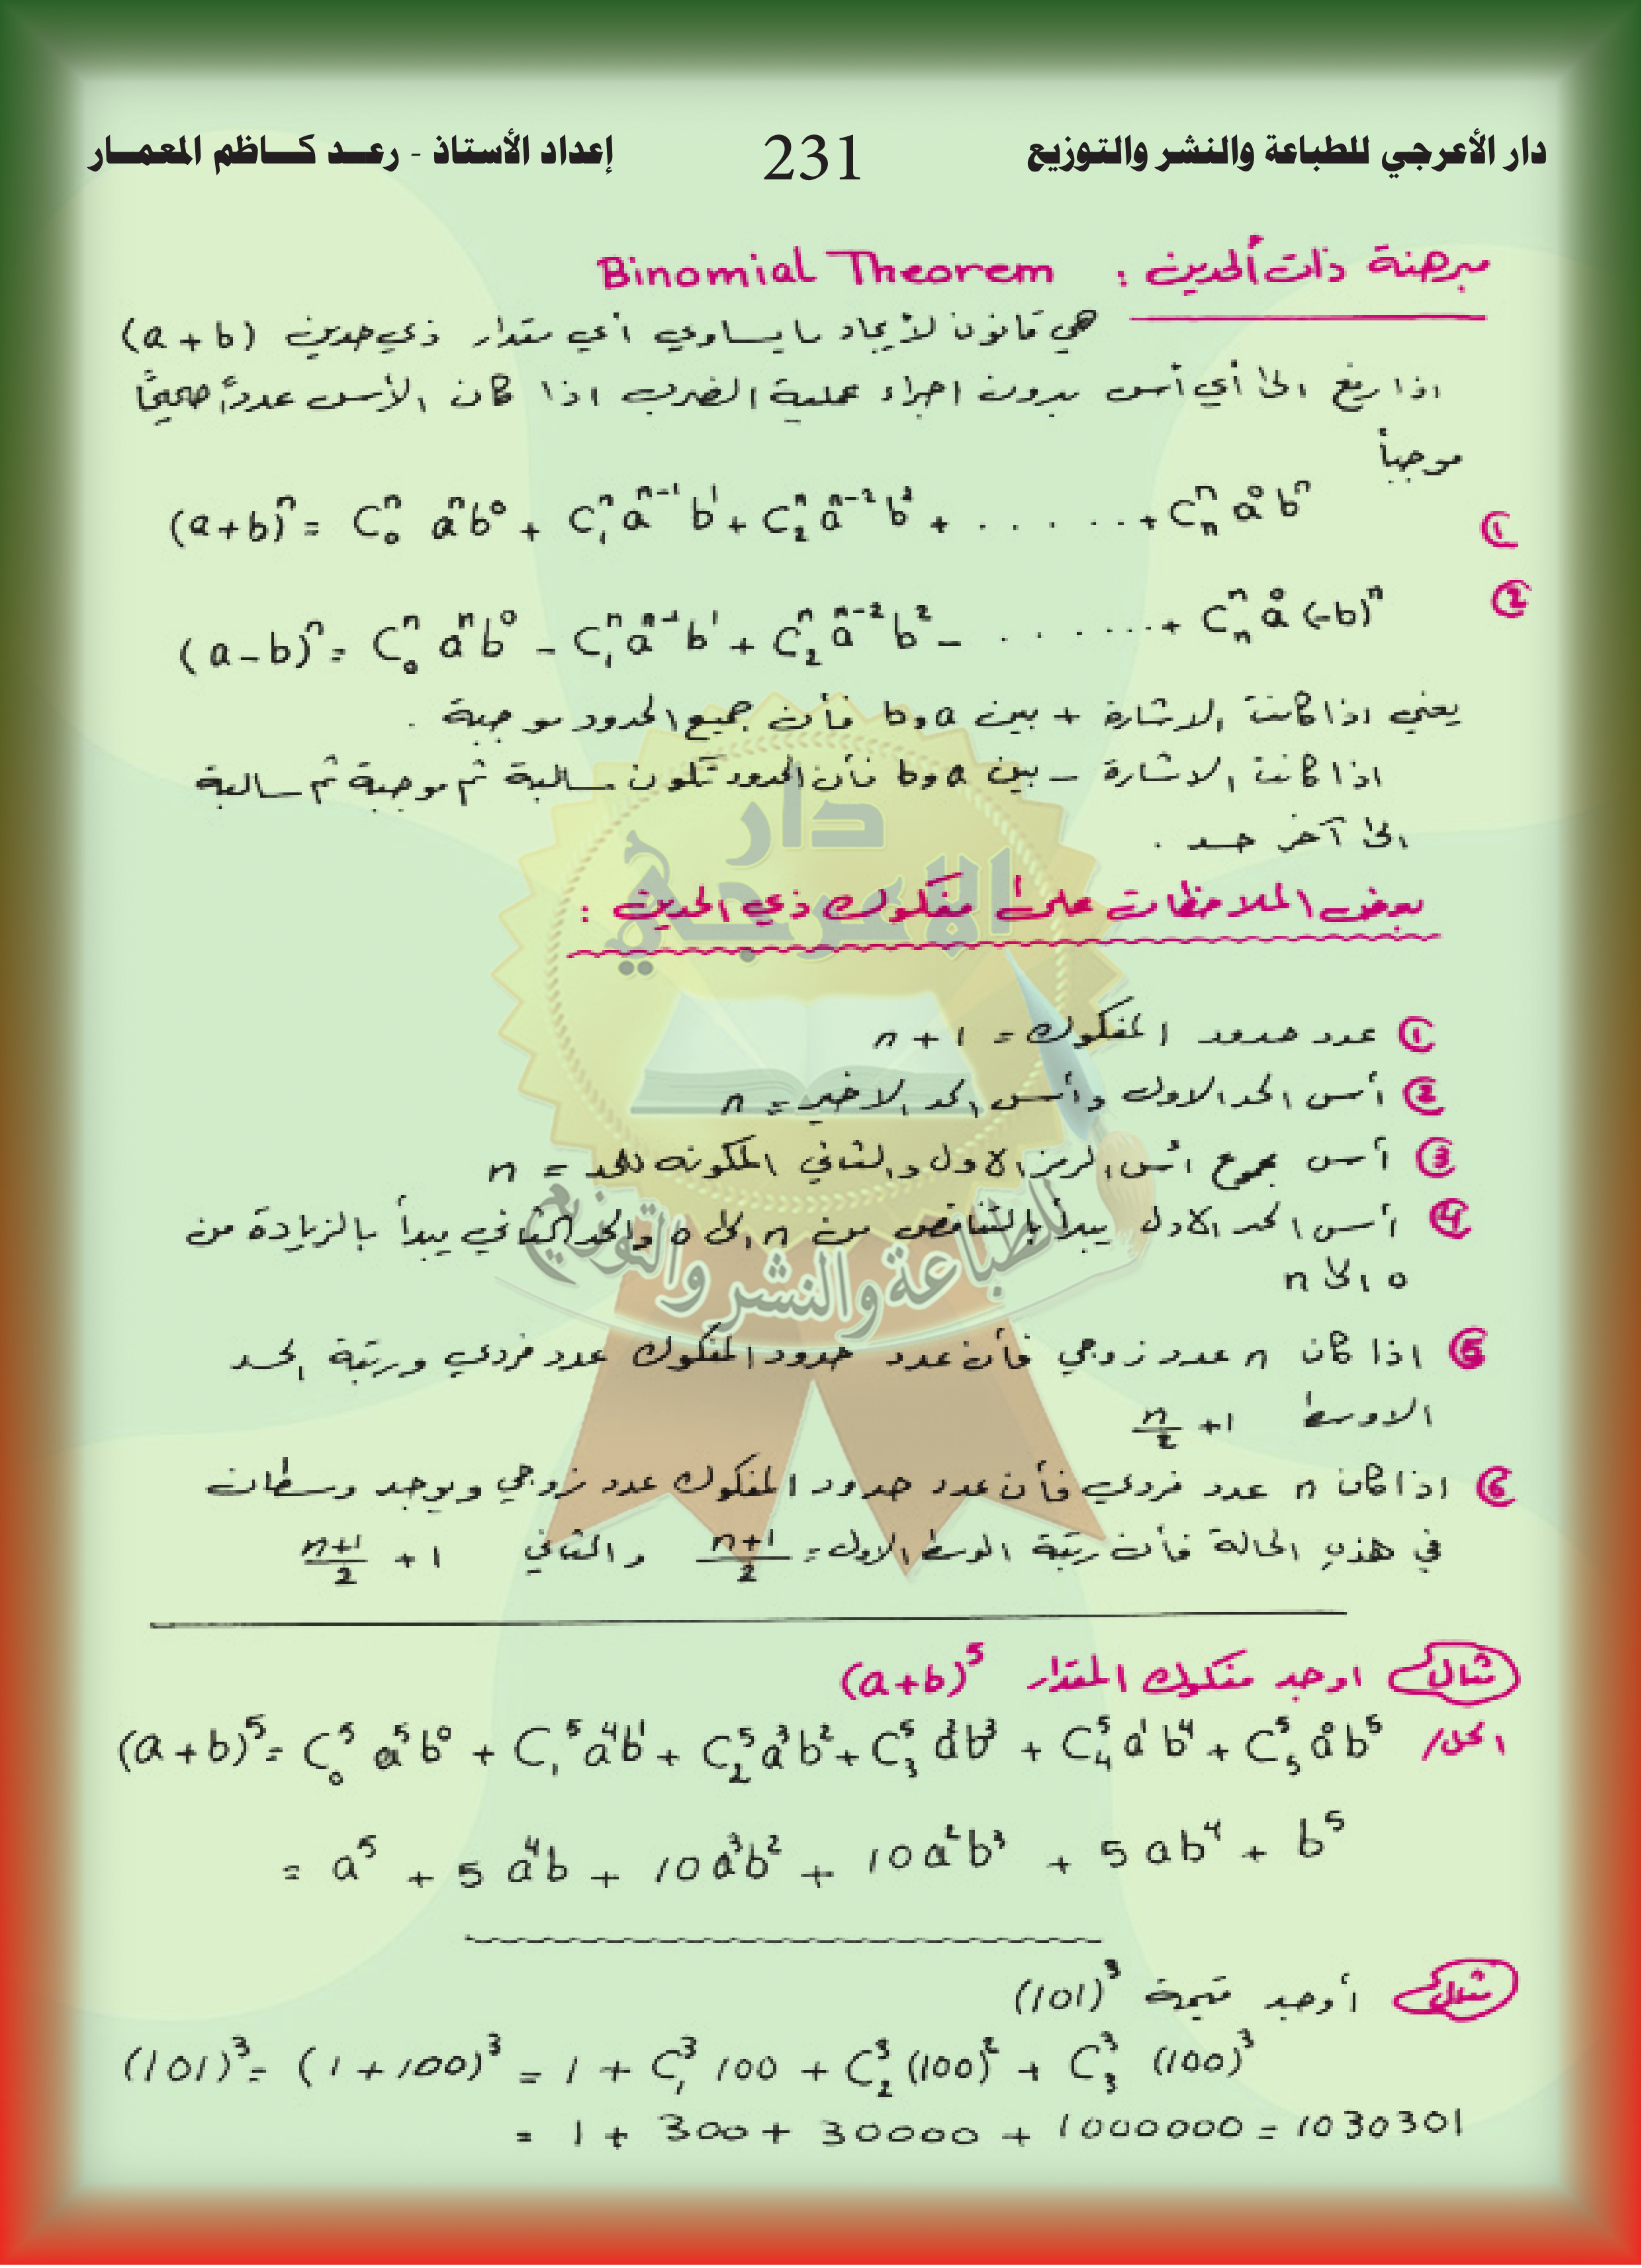 دار الأعرجي للطباعة والنشر والتوزيع 231 إعداد الأستاذ - رعد كاظم المعمار
مبرهنة ذات الحدين : Binomial Theorem
هي قانون لأيجاد ما يساوي أي مقدار ذي حدين (a+b)
اذا رفع الى أي أس بدون اجراء عملية الضرب اذا كان الأس عدداً صحيحاً
موجباً
① (a+b)ⁿ = C₀ⁿ aⁿb⁰ + C₁ⁿ aⁿ⁻¹b¹ + C₂ⁿ aⁿ⁻²b² + ...... + Cₙⁿ a⁰bⁿ
② (a-b)ⁿ = C₀ⁿ aⁿb⁰ - C₁ⁿ aⁿ⁻¹b¹ + C₂ⁿ aⁿ⁻²b² - ...... + Cₙⁿ a⁰(-b)ⁿ
يعني اذا كانت الاشارة + بين a و b فأن جميع الحدود موجبة .
اذا كانت الاشارة - بين a و b فأن الحدود تكون سالبة ثم موجبة ثم سالبة
الى آخر حد .
بعض الملاحظات على مفكوك ذي الحدين :
① عدد حدود المفكوك = n + 1
② أس الحد الاول وأس الحد الاخير = n
③ أس مجموع اس الرمز الاول والثاني المكونه للحد = n
④ أس الحد الاول يبدأ بالتناقص من n الى 0 والحد الثاني يبدأ بالزيادة من
0 الى n
⑤ اذا كان n عدد زوجي فأن عدد حدود المفكوك عدد فردي ورتبة الحد
الاوسط n/2 + 1
⑥ اذا كان n عدد فردي فأن عدد حدود المفكوك عدد زوجي ويوجد وسطان
في هذه الحالة فأن رتبة الوسط الاول = n+1/2 والثاني n+1/2 + 1
مثال اوجد مفكوك المقدار (a+b)⁵
الحل/ (a+b)⁵ = C₀⁵ a⁵b⁰ + C₁⁵ a⁴b¹ + C₂⁵ a³b² + C₃⁵ a²b³ + C₄⁵ a¹b⁴ + C₅⁵ a⁰b⁵
= a⁵ + 5 a⁴b + 10a³b² + 10a²b³ + 5ab⁴ + b⁵
مثال أوجد قيمة (101)³
(101)³ = (1+100)³ = 1 + C₁³ 100 + C₂³ (100)² + C₃³ (100)³
= 1 + 300 + 30000 + 1000000 = 1030301
دار
الاعرجي
للطباعة والنشر والتوزيع